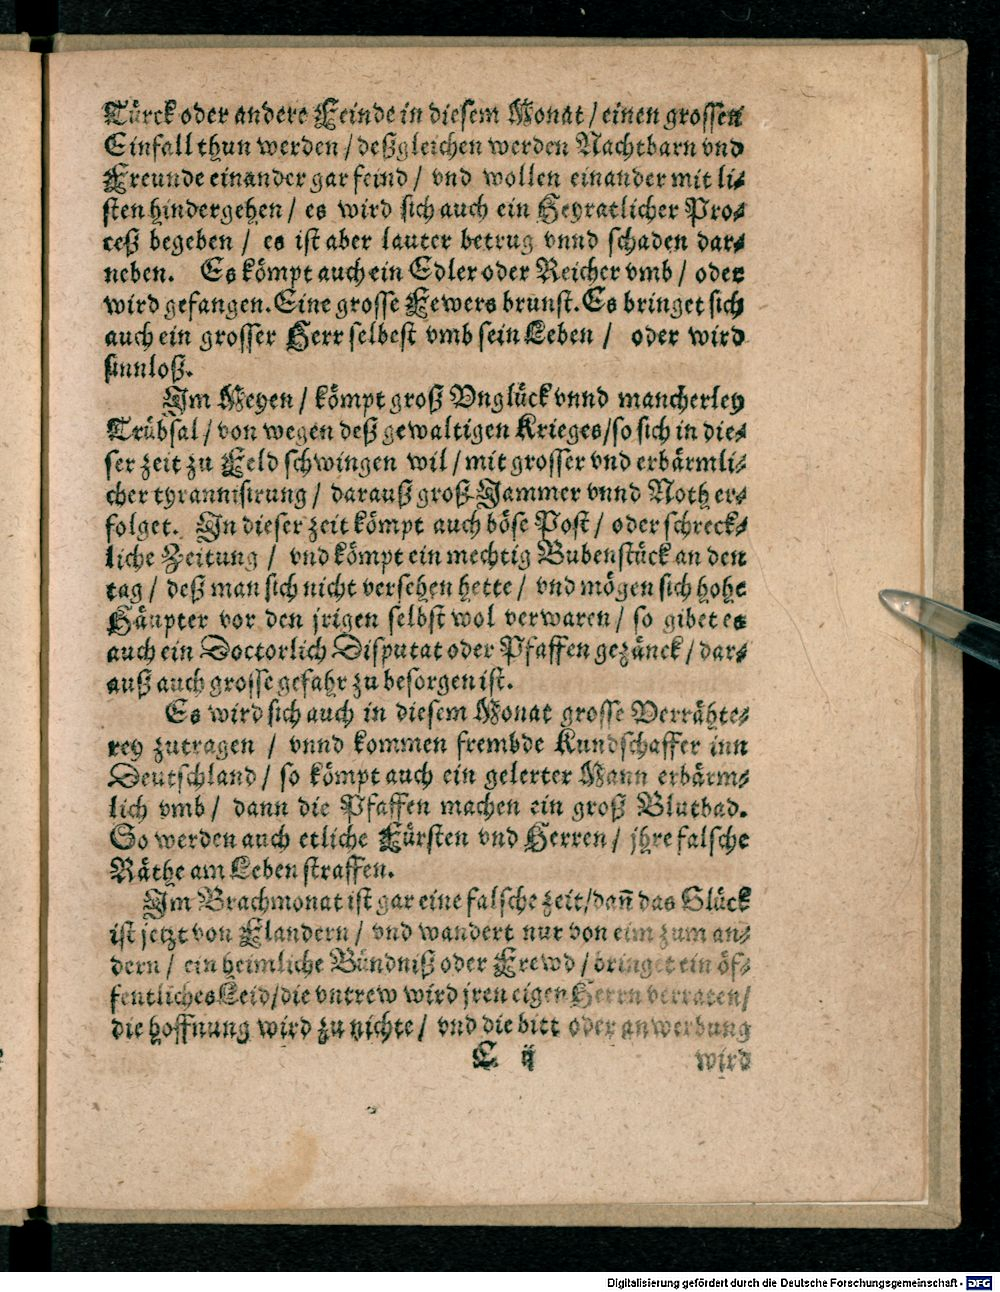 Türck oder andere Feinde in diesem Monat / einen grossen
Einfall thun werden / deßgleichen werden Nachtbarn vnd
Freunde einander gar feind / vnd wollen einander mit li-
sten hindergehen / es wird sich auch ein Heyratlicher Pro-
ceß begeben / es ist aber lauter betrug vnnd schaden dar-
neben. Es kömpt auch ein Edler oder Reicher vmb / oder
wird gefangen. Eine grosse Fewers brunst. Es bringet sich
auch ein grosser Herr selbest vmb sein Leben / oder wird
sinnloß.
Im Meyen / kömpt groß Vnglück vnnd mancherley
Trübsal / von wegen deß gewaltigen Krieges / so sich in die-
ser zeit zu Feld schwingen wil / mit grosser vnd erbärmli-
cher tyrannisirung / darauß groß Jammer vnnd Noth er-
folget. In dieser zeit kömpt auch böse Post / oder schreck-
liche Zeitung / vnd kömpt ein mechtig Bubenstück an den
tag / deß man sich nicht versehen hette / vnd mögen sich hohe
Häupter vor den jrigen selbst wol verwaren / so gibet es
auch ein Doctorlich Disputat oder Pfaffen gezänck / dar-
auß auch grosse gefahr zu besorgen ist.
Es wird sich auch in diesem Monat grosse Verrähte-
rey zutragen / vnnd kommen frembde Kundschaffer inn
Deutschland / so kömpt auch ein gelerter Mann erbärm-
lich vmb / dann die Pfaffen machen ein groß Blutbad.
So werden auch etliche Fürsten vnd Herren / jhre falsche
Räthe am Leben straffen.
Im Brachmonat ist gar eine falsche zeit / dañ das Glück
ist jetzt von Flandern / vnd wandert nur von eim zum an-
dern / ein heimliche Bündniß oder Frewd / bringet ein öf-
fentliches Leid / die vntrew wird jren eigen Herrn verraten /
die hoffnung wird zu nichte / vnd die bitt oder anwerbung
C ij wird
Digitalisierung gefördert durch die Deutsche Forschungsgemeinschaft - DFG